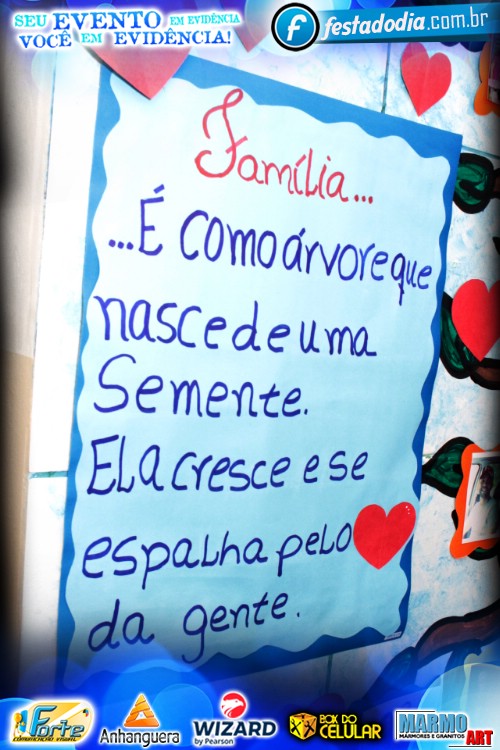 SEU EVENTO EM EVIDÊNCIA
VOCÊ EM EVIDÊNCIA!
f festadodia.com.br
Família...
...É como árvore que
nasce de uma
Semente.
Ela cresce e se
espalha pelo
da gente.
Forte
COMUNICAÇÃO VISUAL
Anhanguera
WIZARD
by Pearson
BOX DO
CELULAR
MARMO
MÁRMORES E GRANITOS
ART